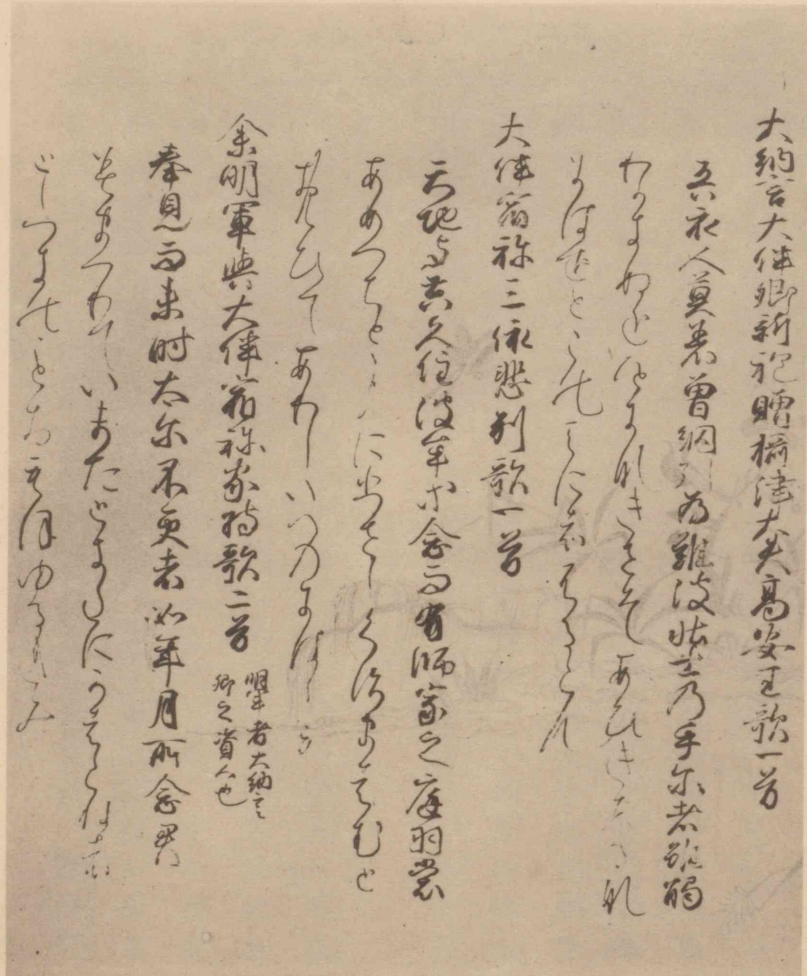 大納言大伴卿新袍贈攝津大夫高安王歌一首
吾衣人莫著曽網引為難波壮士乃手尓者雖觸
わかきぬをひとになきせそあひきするな
にはをとこのてにはふるとも
大伴宿祢三依悲別歌一首
天地与共久住波牟等念而有師家之庭羽裳
あめつちとともにひさしくすまはむと
おもひてありしいへのにははも
余明軍與大伴宿祢家持歌二首 明軍者大納言
卿之資人也
奉見而未時太尓不更者如年月所念君
みまつりていまたときたにかはらねは
としつきのことおもほゆるきみ